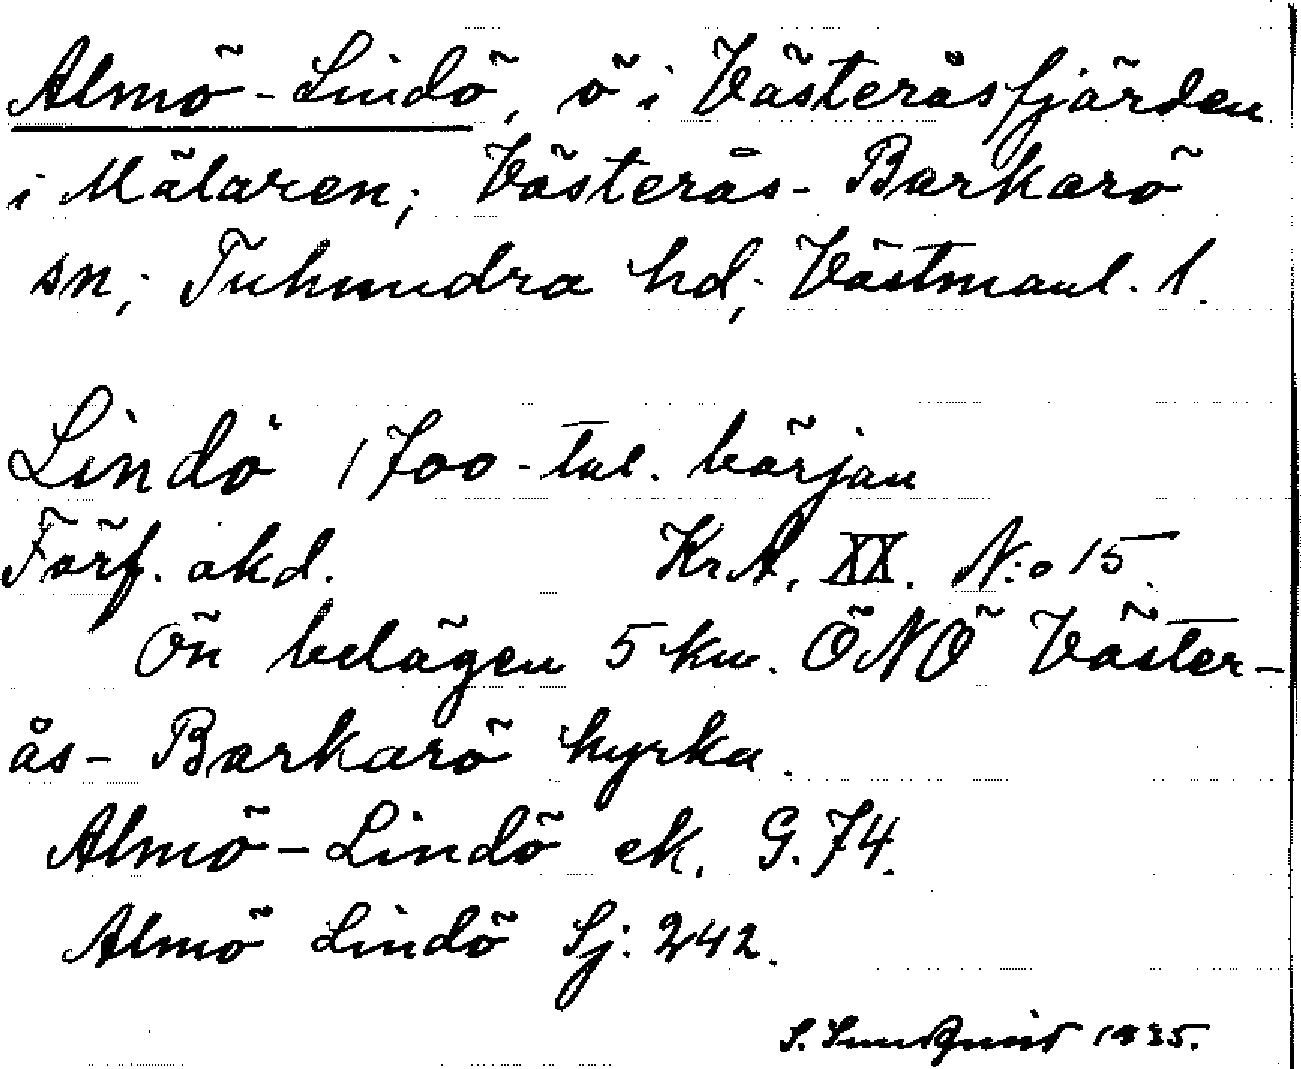 Almö-Lindö, ö i Västeråsfjärden
i Mälaren; Västerås-Barkarö
sn; Tuhundra hd; Västmanl. l.
Lindö 1700-tal. början
Förf. okd. Kr.A. XX. N:o 15.
Ön belägen 5 km. ÖNÖ Väster-
ås-Barkarö kyrka.
Almö-Lindö ek. G. 74.
Almö Lindö Sj: 242.
S. Sundquist 1935.